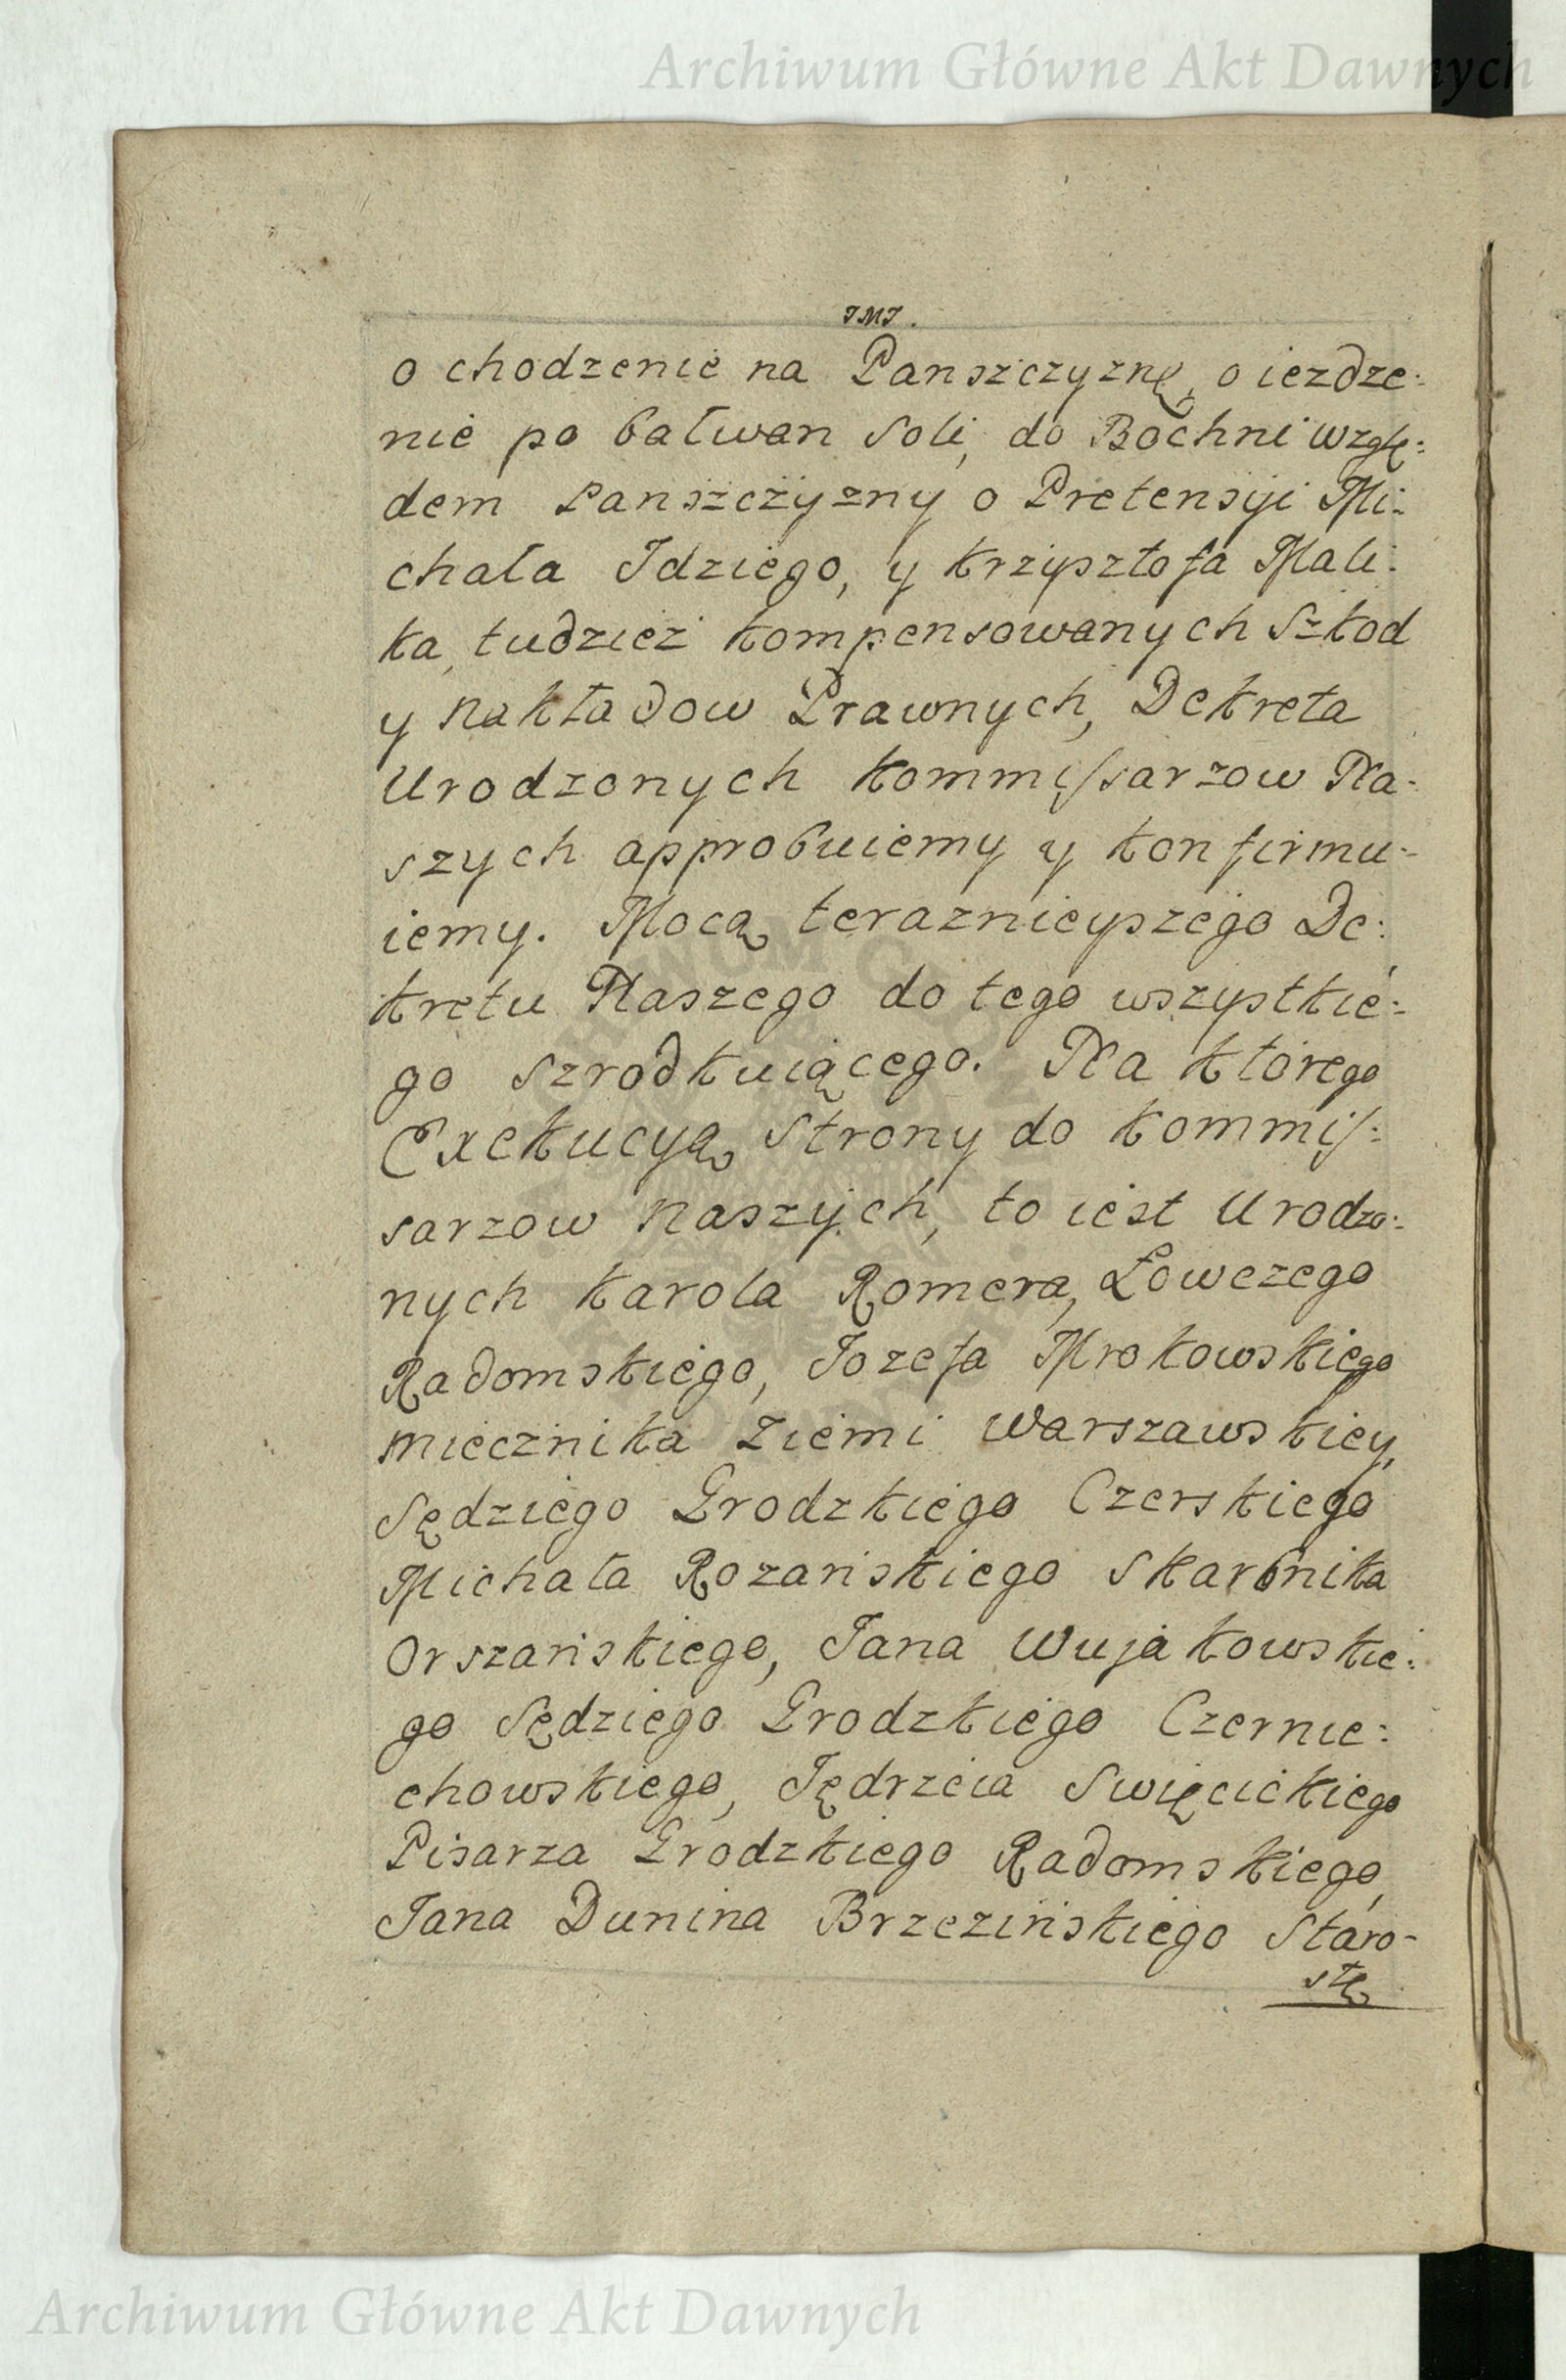 Archiwum Główne Akt Dawnych
JMJ.
o chodzenie na Panszczyznę, o iezdze:
nie po bałwan Soli, do Bochni wzglę:
dem Panszczyzny o Pretensyi Mi:
chała Idziego, y Krzysztofa Mali:
ka, tudziez kompensowanych Szkod
y Nakładow Prawnych, Dekreta
Urodzonych Kommissarzow Na:
szych approbuiemy y konfirmu:
iemy. Mocą teraznieyszego De:
kretu Naszego do tego wszystkie:
go szrodkuiącego. Na którego
Exekucyą Strony do Kommis:
sarzow Naszych, to iest Urodzo:
nych Karola Romera, Łowczego
Radomskiego, Jozefa Mrokowskiego
Miecznika Ziemi Warszawskiey,
Sędziego Grodzkiego Czerskiego
Michała Rozańskiego Skarbnika
Orszańskiego, Jana Wujakowskie:
go Sędziego Grodzkiego Czernie:
chowskiego, Jędrzeia Swięcickiego
Pisarza Grodzkiego Radomskiego,
Jana Dunina Brzezińskiego Staro-
stę
Archiwum Główne Akt Dawnych